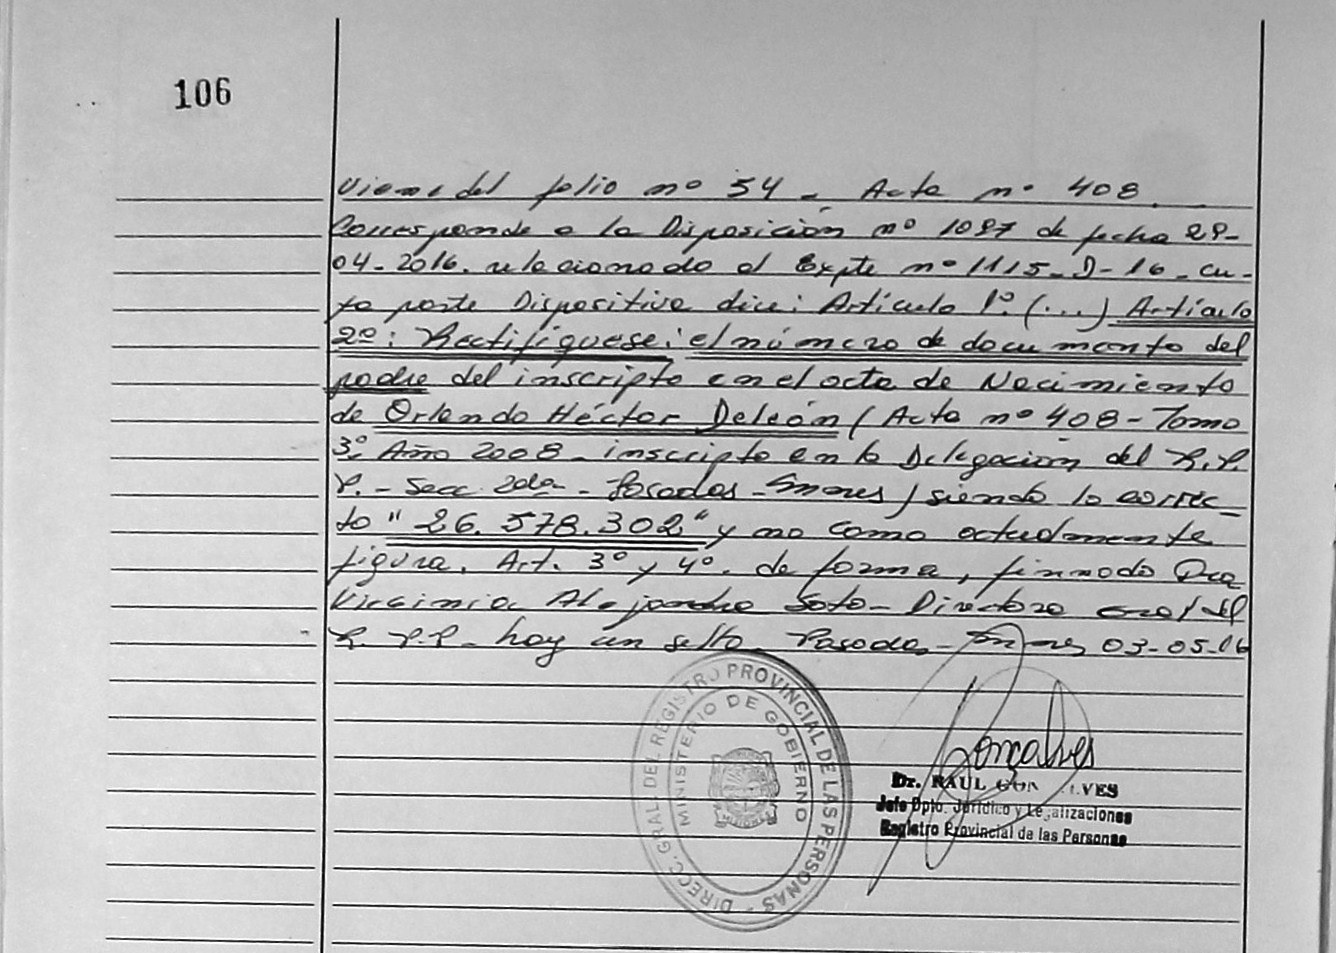 106
Viene del folio nº 54 - Acta nº 408.
Corresponde a la Disposición nº 1097 de fecha 29-
04-2016. relacionado al Expte nº 1115-D-16- cu-
ya parte Dispositiva dice: Artículo 1º. (...) Artículo
2º: Rectifíquese: el número de documento del
padre del inscripto en el acta de Nacimiento
de Orlando Héctor Deleón (Acta nº 408 - Tomo
3º. Año 2008 - inscripto en la Delegación del R.P.
P. - Secc. - Posadas - Mnes) siendo lo correc-
to "26.578.302" y no como actualmente
figura. Art. 3º y 4º. de forma, firmado Dra
Virginia Alejandra Soto - Directora Gral del
R.P.P - hay un sello. Posadas - Mnes, 03-05-16
DIRECC. GRAL. DEL REGISTRO PROVINCIAL DE LAS PERSONAS -
MINISTERIO DE GOBIERNO
MISIONES
Gonçalves
Dr. RAUL
Jefe Dpto. Jurídico y Legalizaciones
Registro Provincial de las Personas